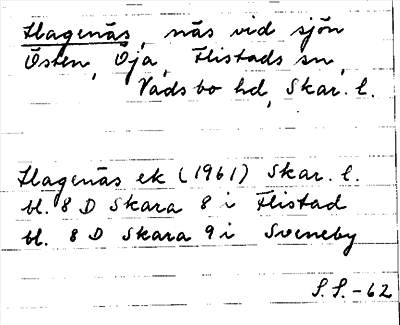 Hagenäs, näs vid sjön
Östen, Öja, Flistads sn,
Vadsbo hd, Skar. l.
Hagenäs ek (1961) Skar. l.
bl. 8 D Skara 8 i Flistad
bl. 8 D Skara 9 i Sveneby
S.S.-62